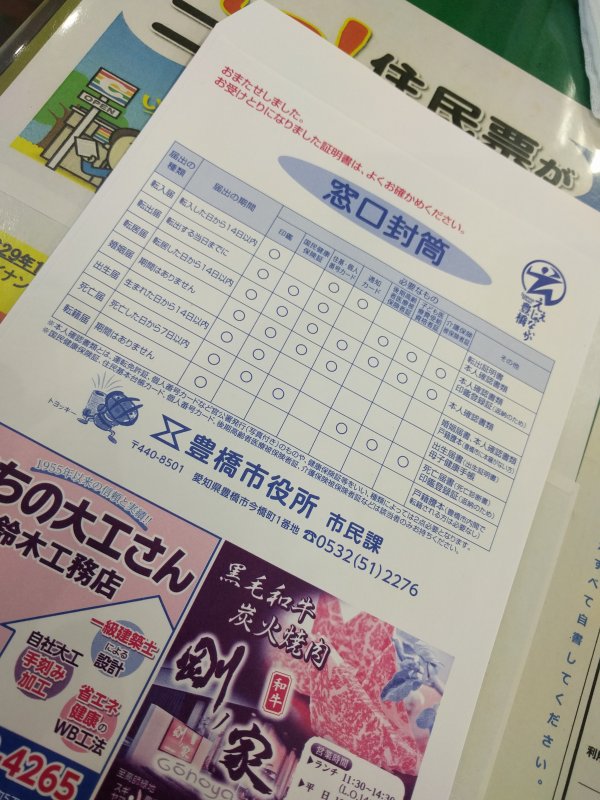 住民票が
OPEN
おまたせしました。
お受けとりになりました証明書は、よくお確かめください。
窓口封筒
届出の種類
届出の期間
必要なもの
その他
印鑑
国民健康保険証
住基・個人番号カード
通知カード
介護保険被保険者証
転入届
転入した日から14日以内
○
転出証明書
本人確認書類
転出届
転出する当日までに
本人確認書類
印鑑登録証(返納のため)
転居届
転居した日から14日以内
本人確認書類
婚姻届
期間はありません
婚姻届書、本人確認書類
出生届
生まれた日から14日以内
出生届書(出生証明書)
母子健康手帳
死亡届
死亡した日から7日以内
死亡届書(死亡診断書)
印鑑登録証(返納のため)
転籍届
期間はありません
トヨッキー
豊橋市役所 市民課
〒440-8501 愛知県豊橋市今橋町1番地 ☎0532(51)2276
豊橋
1955年以来の信頼と実績!!
ちの大工さん
鈴木工務店
一級建築士
による
設計
自社大工
手刻み
加工
省エネ・
健康の
WB工法
4265
黒毛和牛
炭火焼肉
和牛
剛ノ家
Gonoya
営業時間
▶ランチ 11:30~14:30
(L.O.14
▶平 日
すべて自書してください。